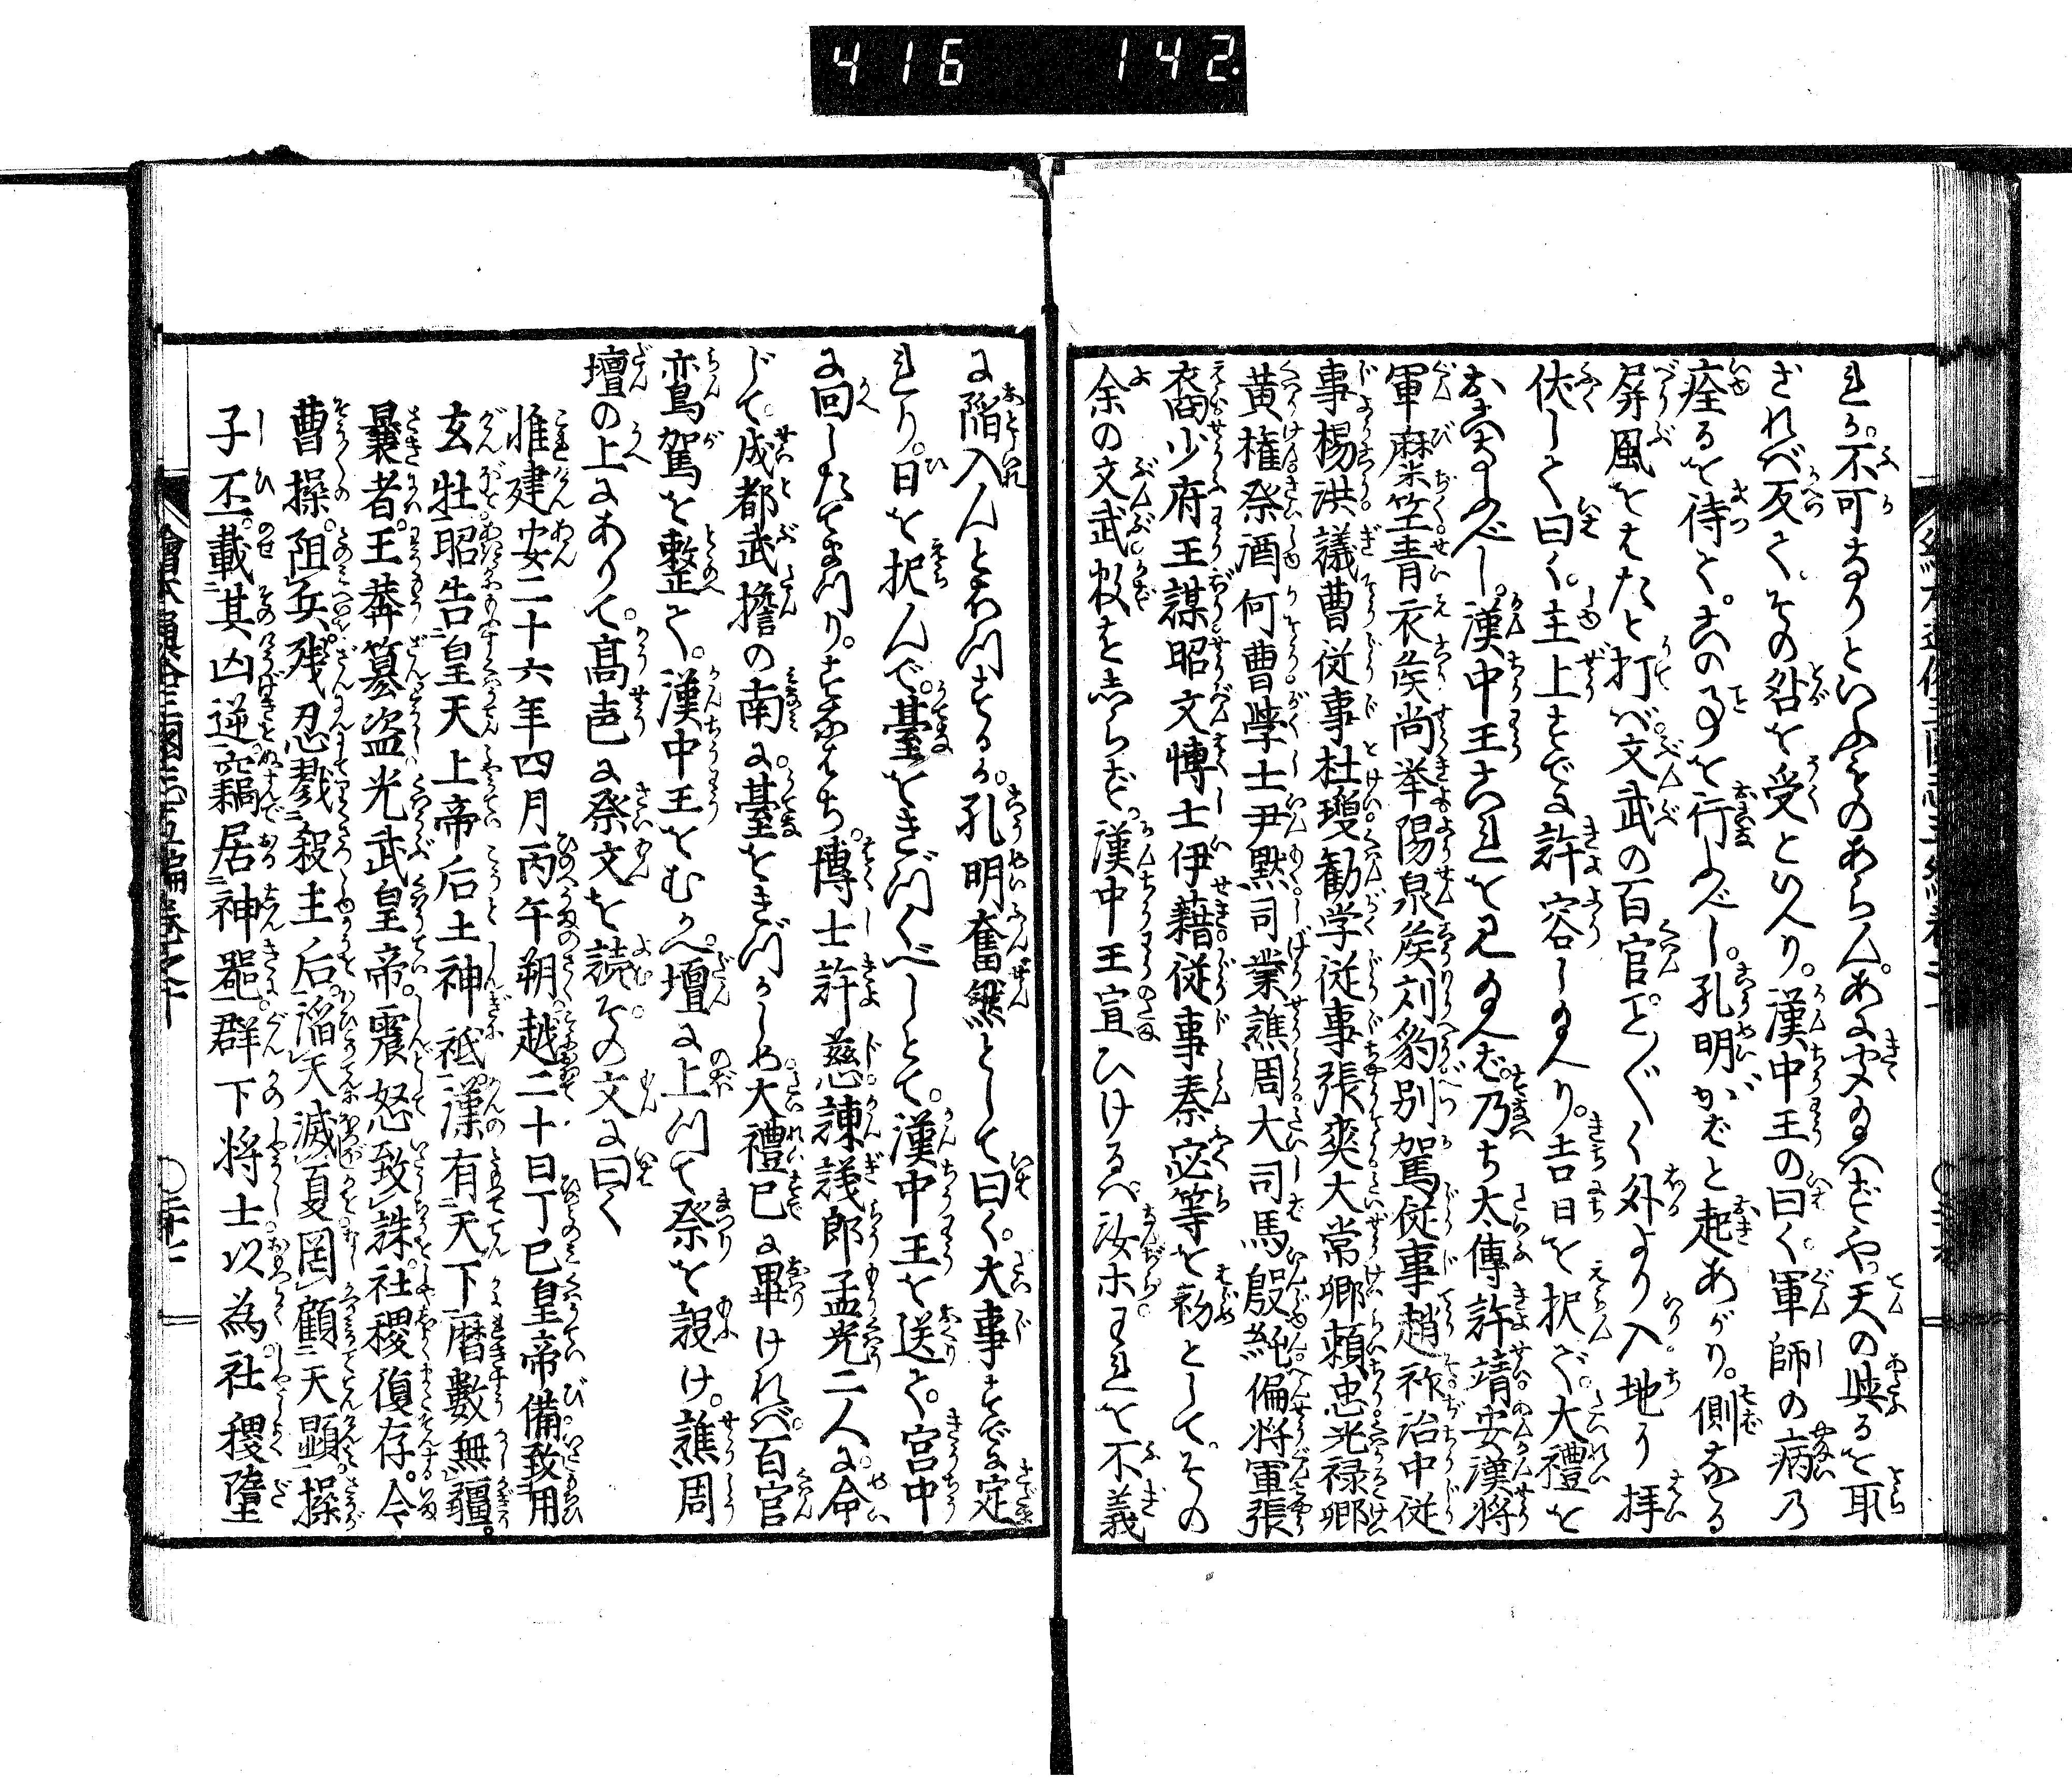 416 142
れか不可なりといふものあらんあに聞給はずや天の與るを取
ざれバ反てその咎を受と候へり漢中王の曰く軍師の病乃
痊るを待てこの事を行ふべし孔明がばと起あがり側なる
屏風をはたと打バ文武の百官こと〴〵く外より入地に拝
伏して曰く主上すでに許容し給へり吉日を択び大禮を
おこなふべし漢中王これを見給へば乃ち太傳許靖安漢将
軍麋竺青衣矦尚挙陽泉矦刘豹別駕従事趙祚治中従
事楊洪議曹従事杜瓊勧学従事張爽大常卿頼忠光禄卿
黄権祭酒何曹学士尹黙司業譙周大司馬殷純偏将軍張
裔少府王謀昭文博士伊藉従事秦宓等を初としてその
余の文武数をしらず漢中王宣ひけるハ汝ホわれを不義
に陥入んとおハするか孔明奮然として曰く大事すでに定
れり日を択んで臺をきづくべしとて漢中王を送て宮中
に回したてまつりすなはち博士許慈諌議郎孟光二人に命
じて成都武擔の南に臺をきづかしめ大禮已に畢けれバ百官
鸞駕を整て漢中王をむかへ壇に上つて祭を設け譙周
壇の上にありて高声に祭文を読その文に曰く
惟建安二十六年四月丙午朔越二十日丁巳皇帝備致用
玄牡昭告皇天上帝后土神祇漢有天下暦數無疆
曩者王莽篡盗光武皇帝震怒致誅社稷復存今
曹操阻兵残忍戮殺主后滔天滅夏罔顧天顕操
子丕載其凶逆竊居神器群下将士以為社稷墮
繪本通俗三國志五編巻之十